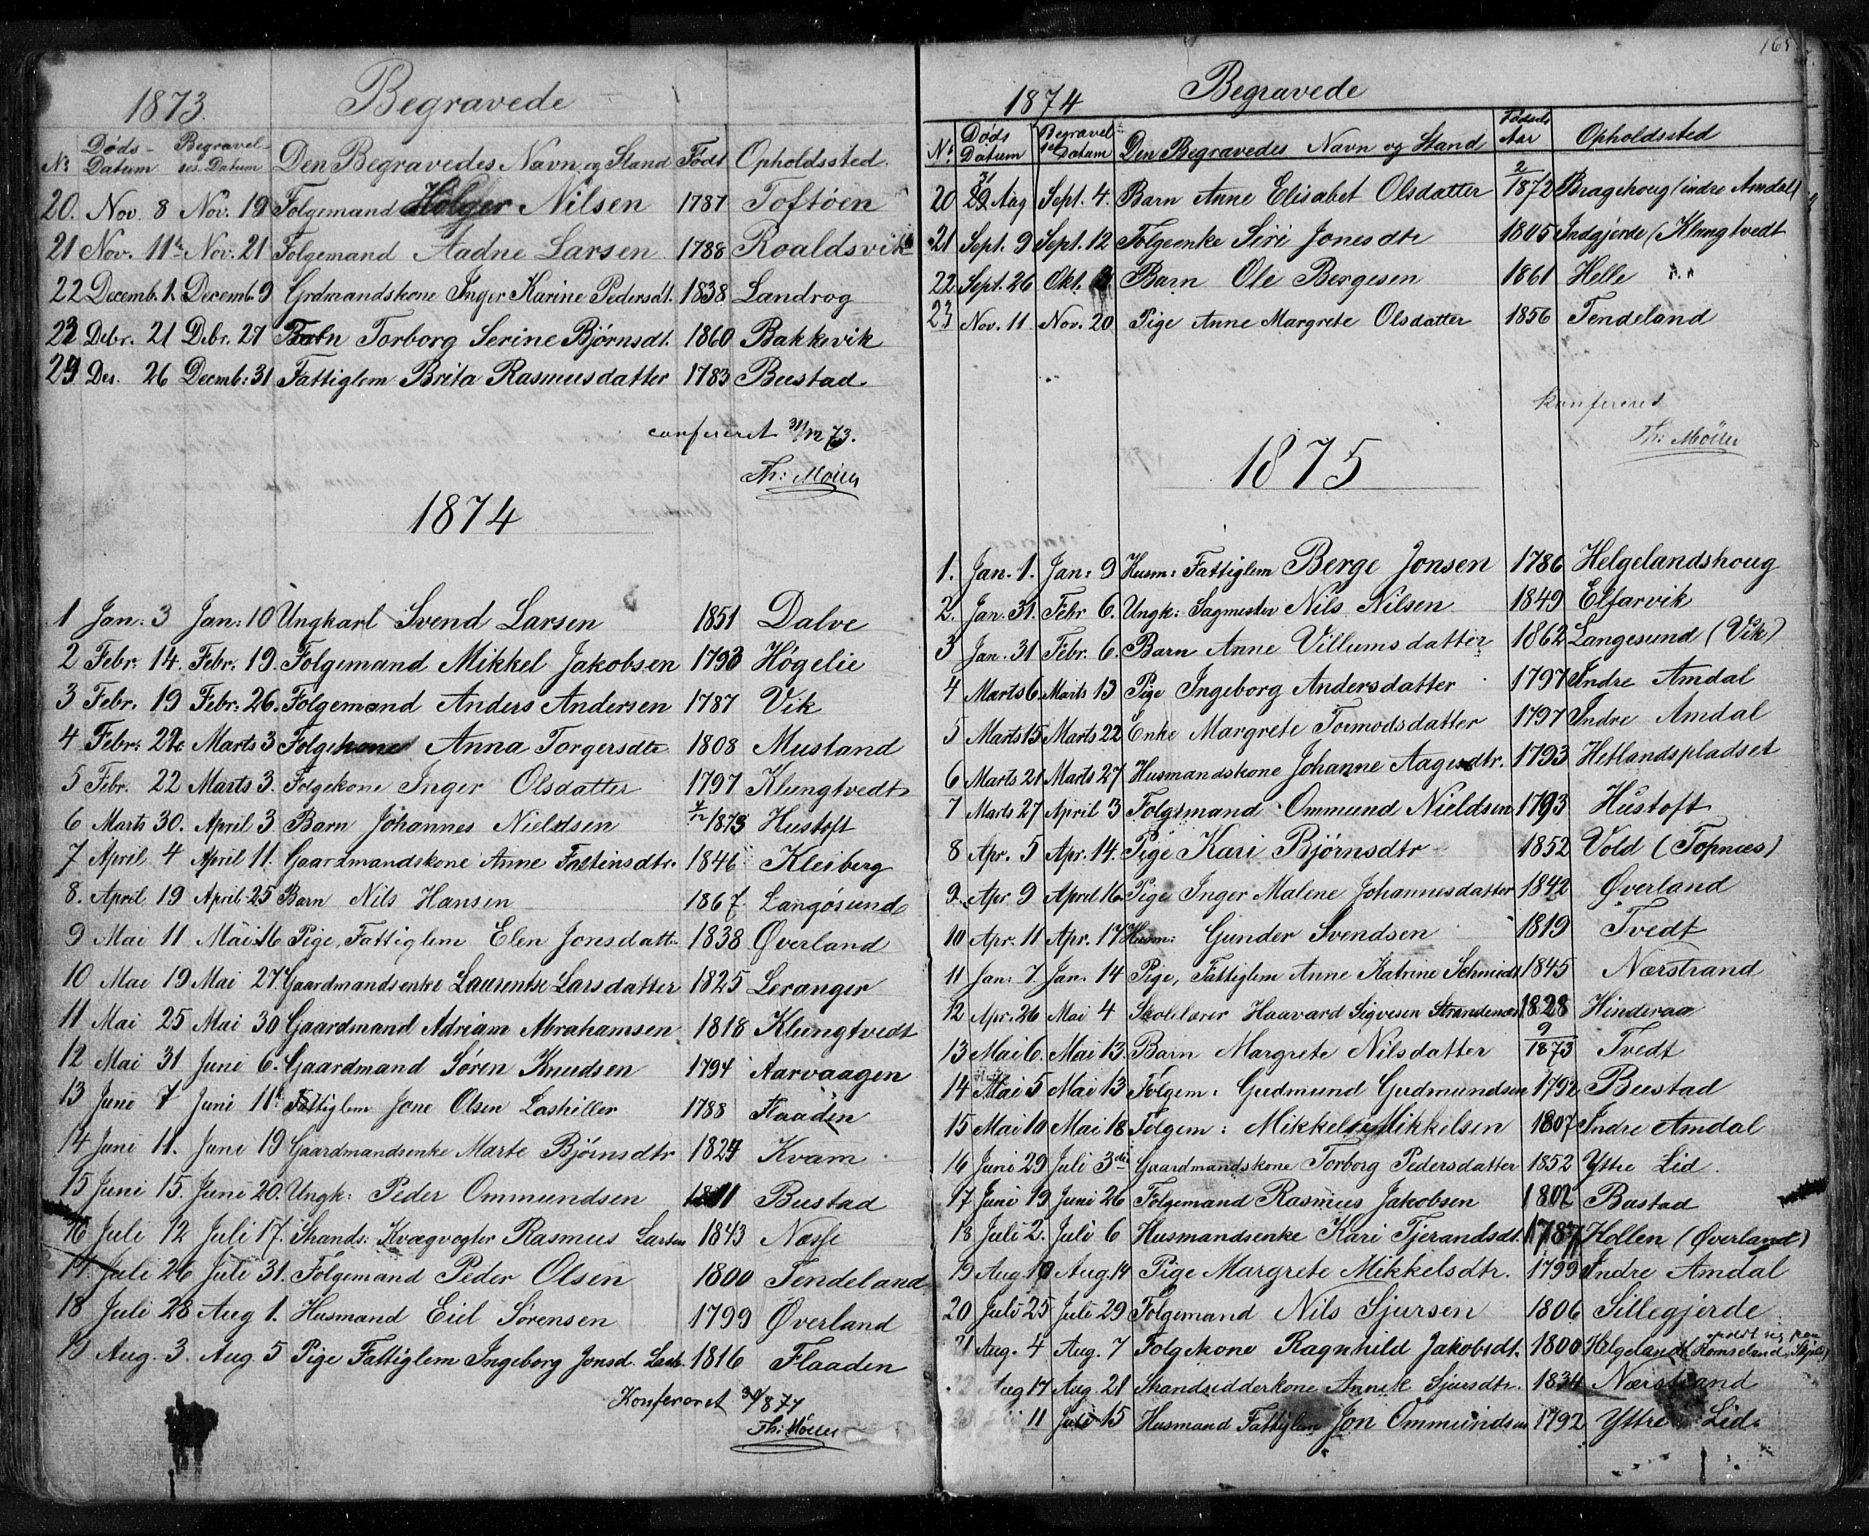 1873. Begravede
№ Døds-Datum Begravel-ses-Datum Den Begravedes Navn og Stand Født Opholdssted.
20. Nov. 8 Nov. 19 Folgemand Holger Nilsen 1787 Toftøen
21 Nov. 11te Nov. 21 Folgemand Aadne Larsen 1788 Roaldsvik
22 Decemb. 1. Decemb 9 Grdmandskone Inger Karine Pedersdt. 1838 Landrog
23 Debr. 21 Debr. 27 Barn Torborg Serine Bjørnsdt. 1860 Bakkevik
24 Des. 26 Decmb: 31 Fattiglem Brita Rasmusdatter 1783 Bustad.
confereret 31/12 73.
Th: Møller
1874
1 Jan. 3 Jan: 10 Ungkarl Svend Larsen 1851 Dalve
2 Febr. 14. Febr. 19. Folgemand Mikkel Jakobsen 1793 Høgelie
3 Febr. 19 Febr. 26. Folgemand Anders Andersen 1787 Vik
4 Febr. Marts 3 Folgekone Anna Torgersdtr 1808 Musland
5 Febr. 22 Marts 3. Folgekone Inger Olsdatter 1797 Klungtvedt
6 Marts 30. April 3 Barn Johannes Nielsen /12 1873 Hustoft
7 April 4 April 11. Gaardmandskone Anne Tostinsdtr. 1846 Kleiberg
8. April 19 April 25 Barn Nils Hansen 1867. Langøsund
9 Mai 11 Mai 16 Pige, Fattiglem Elen Jonsdatt: 1838 Øverland
10 Mai 19 Mai 27 Gaardmandsenke Laurentse Larsdatter 1825 Leranger
11 Mai 25 Mai 30 Gaardmand Adriam Abrahamsen 1818 Klungtvedt
12 Mai 31 Juni 6. Gaardmand Søren Knudsen 1794 Aarvaagen
13 Juni 7 Juni 11te Fattiglem Jone Olsen Laskiller 1788 Flaaden
14 Juni 11. Juni 19 Gaardmandsenke Marte Bjørnsdtr 1824 Kvam
15 Juni 15. Juni 20. Ungk: Peder Ommundsen 1811 Bustad
16 Juli 12 Juli 17. Strands: Kvægvogter Rasmus Larsen 1843 Næsse
17. Juli 26 Juli 31. Folgemand Peder Olsen 1800 Tendeland
18 Juli 28 Aug 1. Husmand Eiel Sørensen 1799 Øverland
19 Aug. 3. Aug. 5 Pige Fattiglem Ingeborg Jonsd. Lask. 1816 Flaaden
Konfereret /1877
Th: Møller
165
1874 Begravede
№ Døds Datum Begravel-ses Datum Den Begravedes Navn og Stand Fødsels Aar Opholdssted
20 31 Aug Sept. 4. Barn Anne Elisabet Olsdatter 2/1872 Bragehoug (indre Amdal)
21 Sept. 9 Sept. 12 Folgeenke Siri Jonesdtr 1805 Indgjerde (Klungtvedt
22. Sept. 26 Okt. Barn Ole Bergesen 1861 Helle
23 Nov. 11 Nov. 20 Pige Anne Margrete Olsdatter 1856 Tendeland
konfereret
Th: Møller
1875
1. Jan. 1. Jan: 9 Husm: Fattiglem Berge Jonsen 1786 Helgelandshoug
2. Jan. 31. Febr 6. Ungk: Sagmester Nils Nilsen 1849 Elfarvik
3 Jan. 31 Febr. 6. Barn Anne Villumsdatter 1862 Langesund (Vik)
4 Marts 6. Marts 13 Pige Ingeborg Andersdatter 1797 Indre Amdal
5 Marts 15 Marts 22 Enke Margrete Tormodsdatter 1797 Indre Amdal
6 Marts 21 Marts 27 Husmandskone Johanne Aagesdtr. 1793 Hetlandspladset
7 Marts 27 April 3 Folgemand Ommund Nieldsen 1793 Hustoft
8 Apr. 5 Apr. 14. Pige Kari Bjørnsdtr 1852 Vold (Topnæs)
9. Apr. 9 April 16. Pige Inger Malene Johannesdatter 1842 Øverland
10 Apr. 11 Apr. 17 Husm: Gunder Svendsen 1819 Tvedt
11 Jan: 7 Jan. 14 Pige, Fattiglem Anne Katrine Schmidt 1845 Nærstrand
12 Apr. 26 Mai 4 Skolelærer Haavard Sigvesen Strandenæs 1828 Hinderaa
13 Mai 6. Mai 13. Barn Margrete Nilsdatter 9/1873 Tvedt
14 Mai 5 Mai 13 Folgem: Gudmund Gudmundsen 1792 Bustad
15 Mai 10 Mai 18 Folgem: Mikkel Mikkelsen 1807 Indre Amdal
16 Juni 29 Juli 3die Gaardmandskone Torborg Pedersdatter 1852 Yttre Lid.
17 Juni 19 Juni 26 Folgemand Rasmus Jakobsen 1802 Bustad
18 Juli 2. Juli 6 Husmandsenke Kari Tjerandsdt. 1787 Hollen (Øverland)
19 Aug. 10 Aug. 14 Pige Margrete Mikkelsdtr. 1799 Indre Amdal
20 Juli 25 Juli 29 Folgemand Nils Sjursen 1806 Sillegjerde
21 Aug. 4 Aug. 7 Folgekone Ragnhild Jakobsdt. 1800 Helgeland
22 Aug 17 Aug. 21 Strandsidderkone Annek Sjursdtr. 1834 Nærstrand
11 Juli 15 Husmand Fattiglem Jon Ommundsen 1792 Yttre Lid.